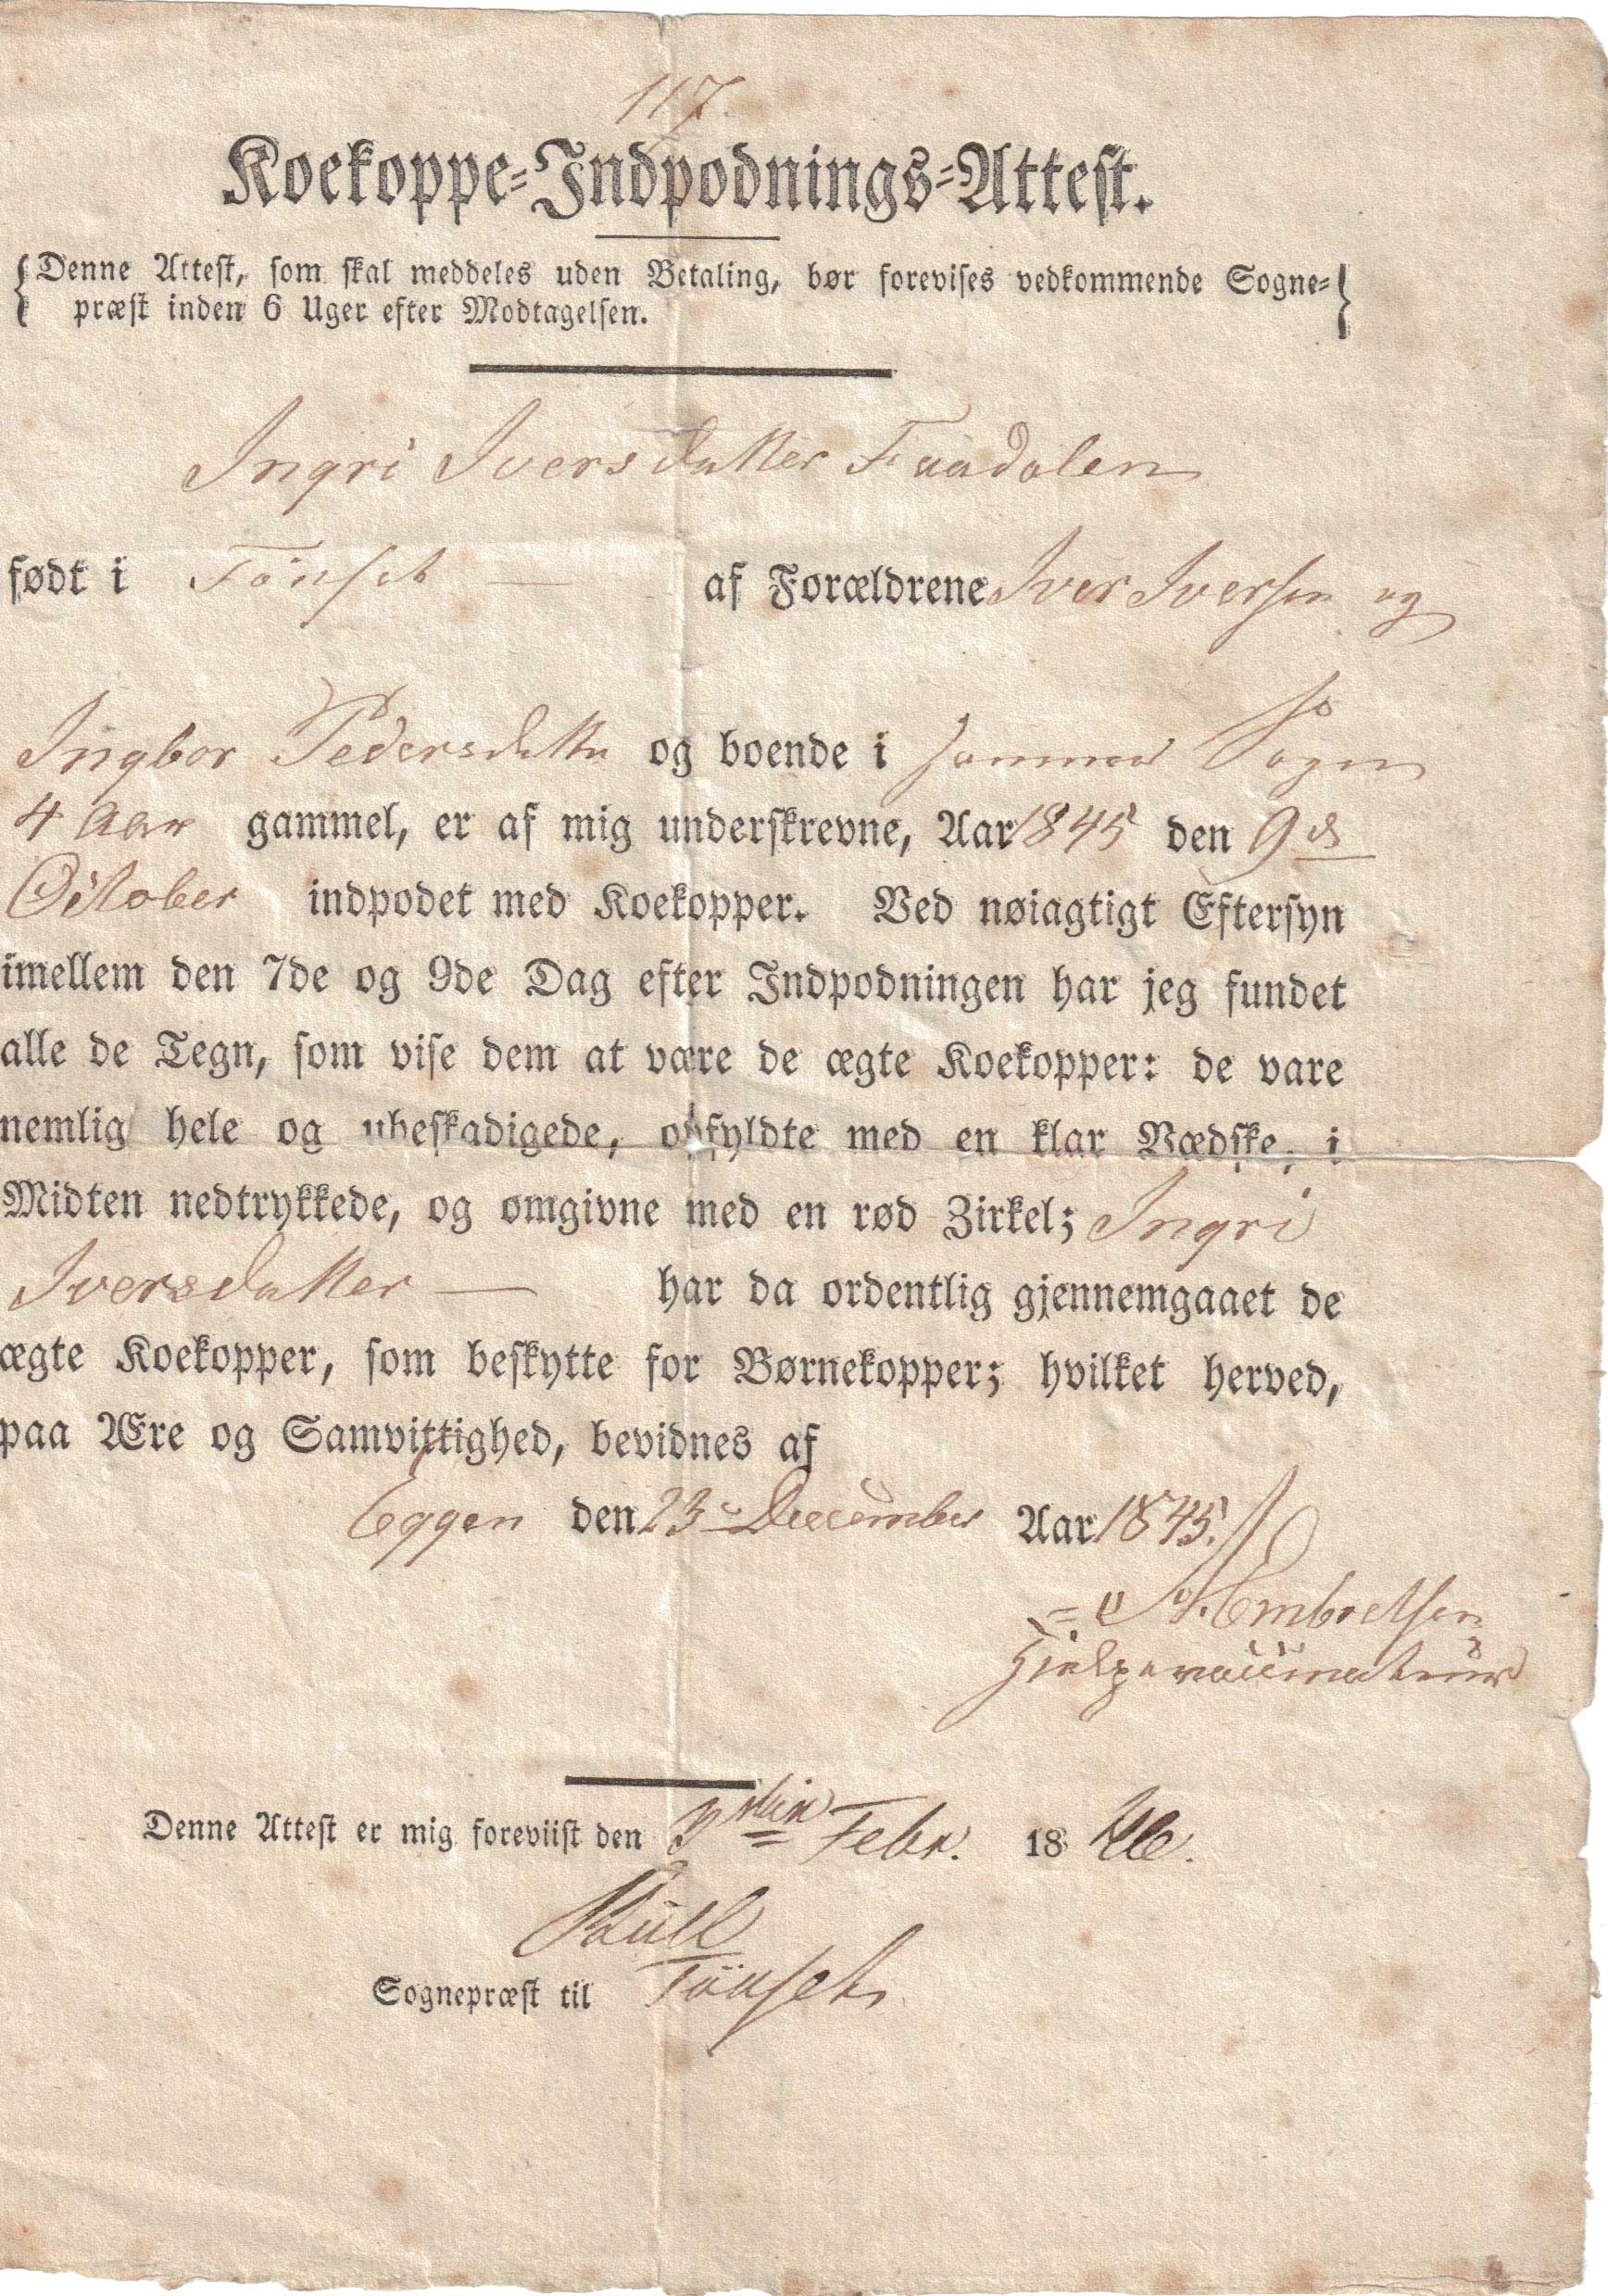 117.
Koekoppe-Indpodnings-Attest.
Denne Attest, som skal meddeles uden Betaling, bør forevises vedkommende Sogne-
præst inden 6 Uger efter Modtagelsen.
Ingri Iversdatter Faadalen
født i Tönset — af Forældrene Iver Iversen og
Ingbor Pedersdatter og boende i samme Sogn
4 Aar gammel, er af mig underskrevne, Aar 1845 den 9de
October indpodet med Koekopper. Ved nøiagtigt Eftersyn
imellem den 7de og 9de Dag efter Indpodningen har jeg fundet
alle de Tegn, som vise dem at være de ægte Koekopper: de vare
nemlig hele og ubeskadigede, opfyldte med en klar Vædske, i
Midten nedtrykkede, og omgivne med en rød Zirkel; Ingri
Iversdatter — har da ordentlig gjennemgaaet de
ægte Koekopper, som beskytte for Børnekopper; hvilket herved,
paa Ære og Samvittighed, bevidnes af
Eggen den 23 December Aar 1845.
Embretsen
Hjelpevaccinateur
Denne Attest er mig foreviist den Febr. 18 46.
Sognepræst til Tönset